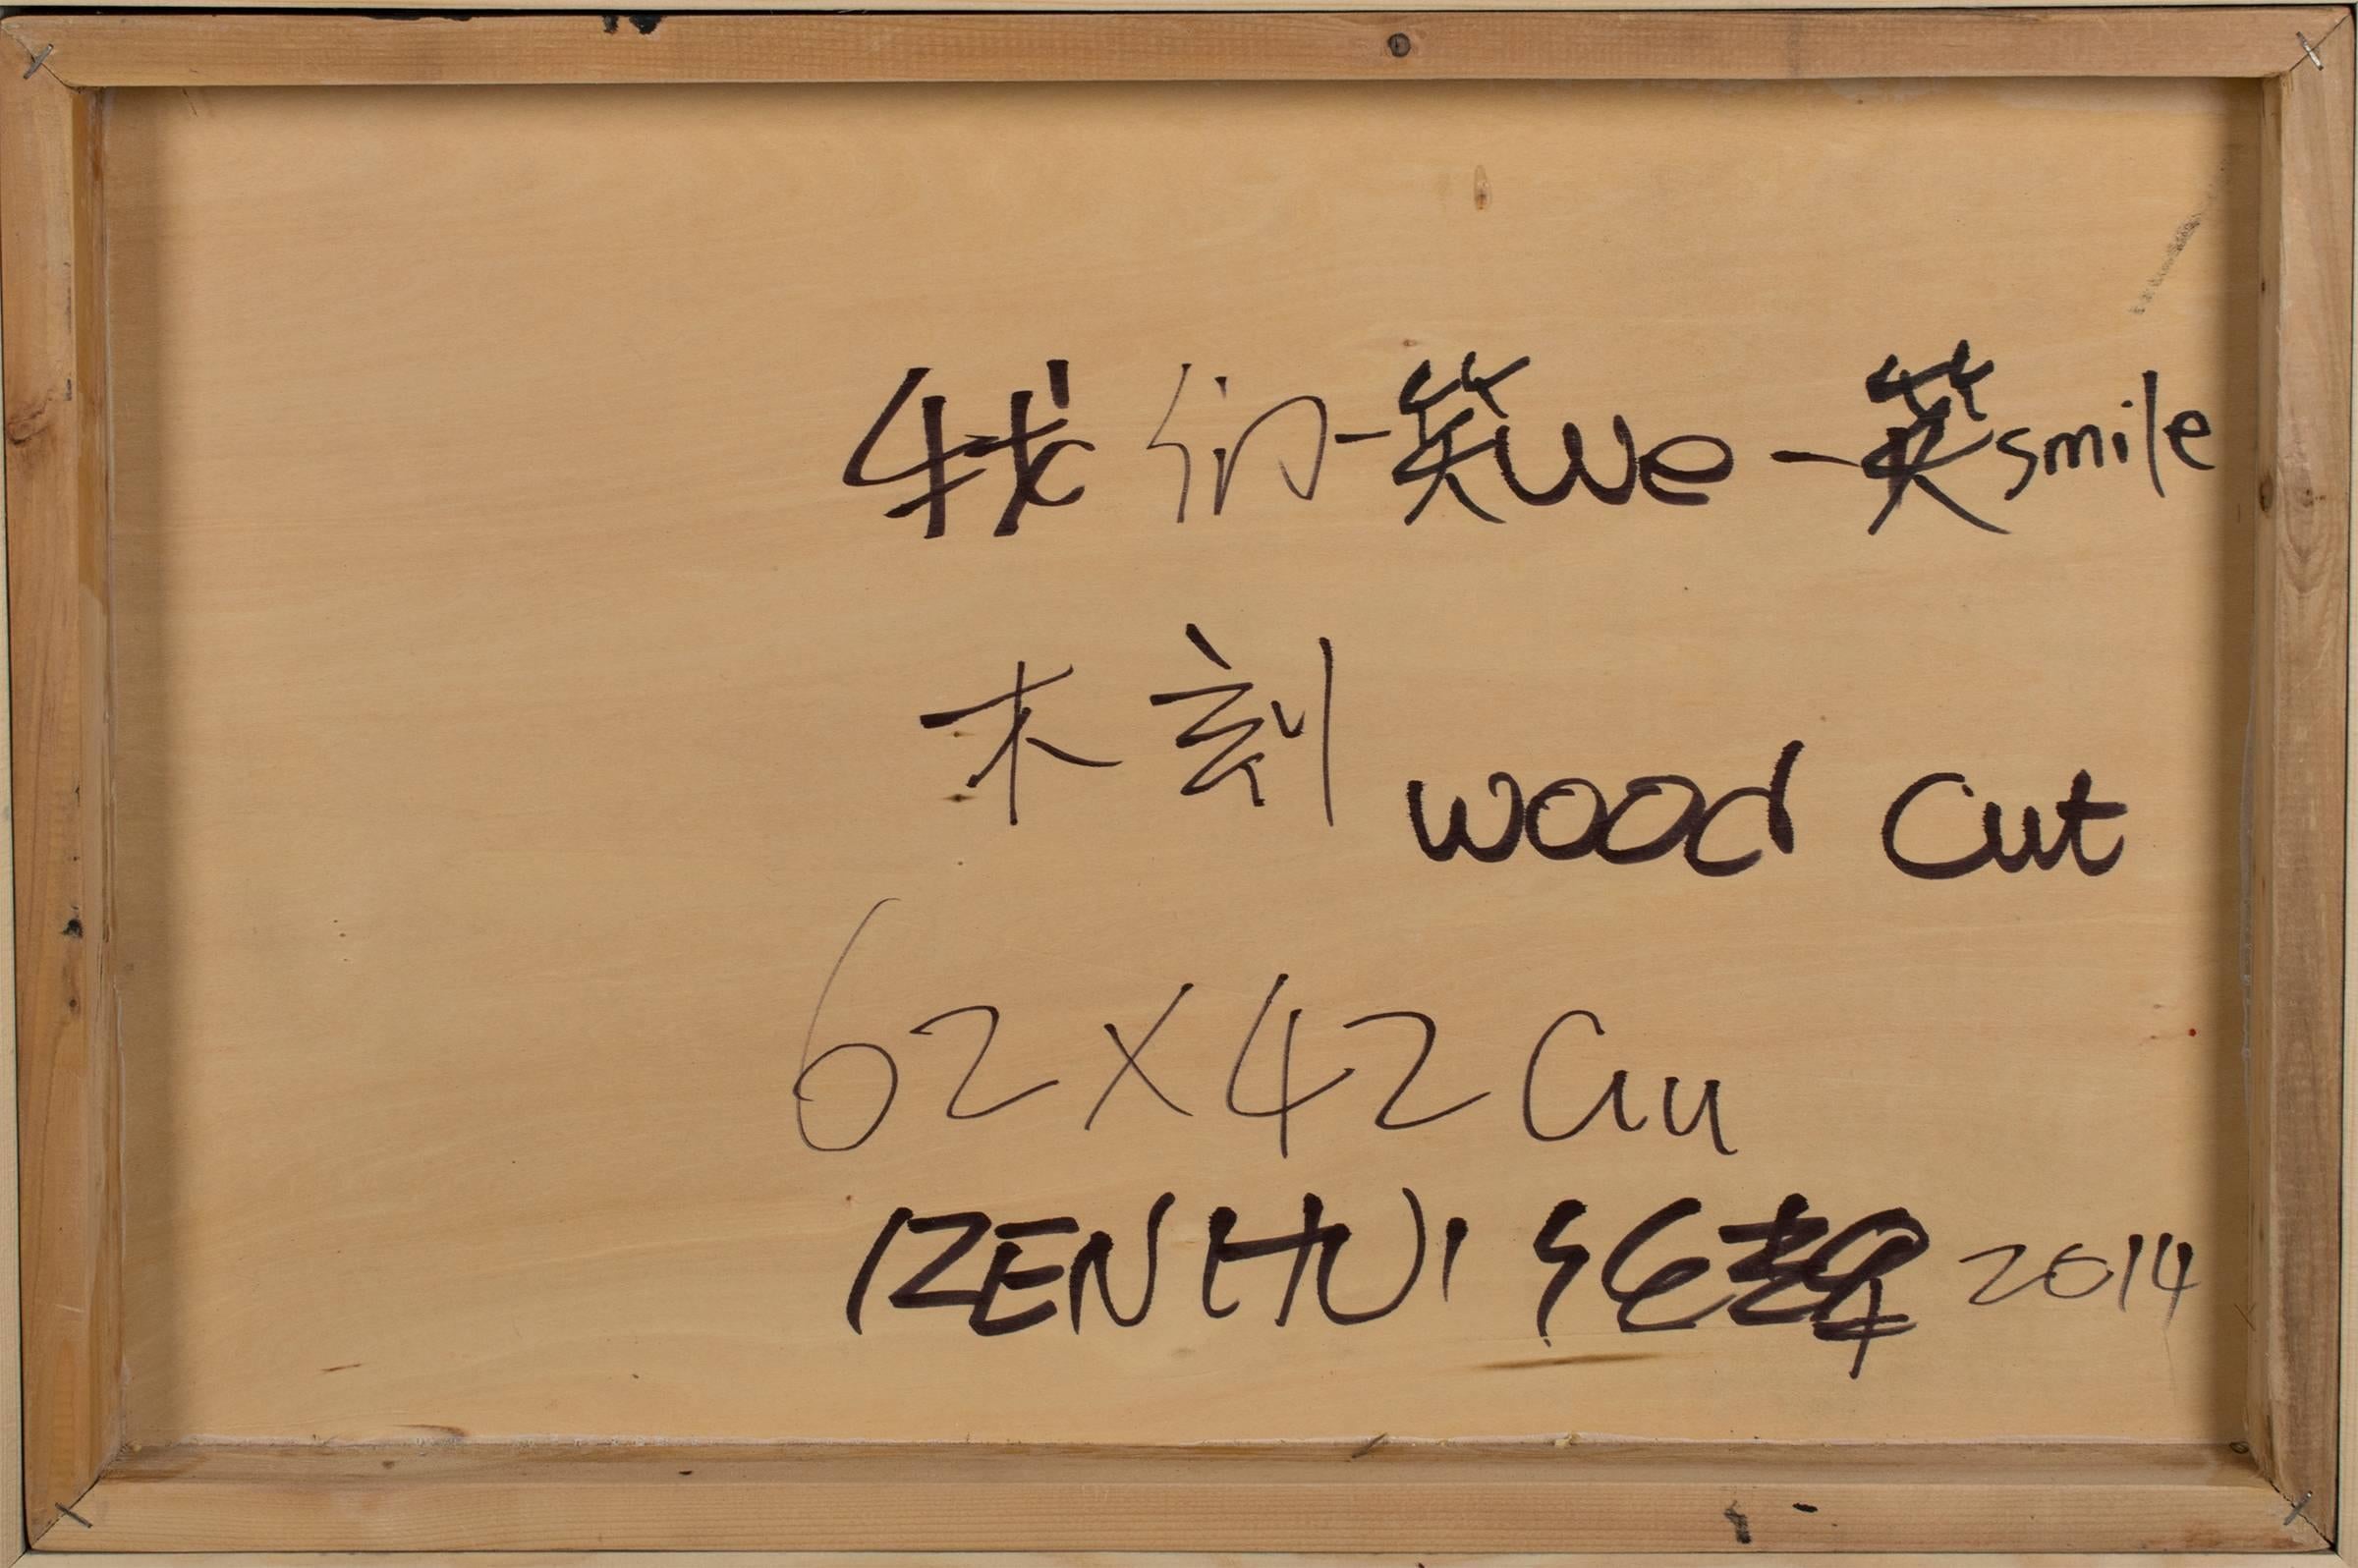 我们-笑We-笑smile
木刻 wood cut
62×42cm
RENHUI 2014